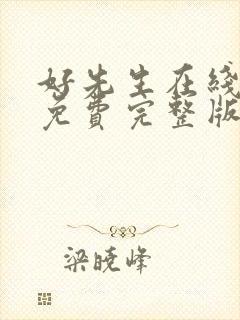 好先生在线
免费完整版
梁晓峰